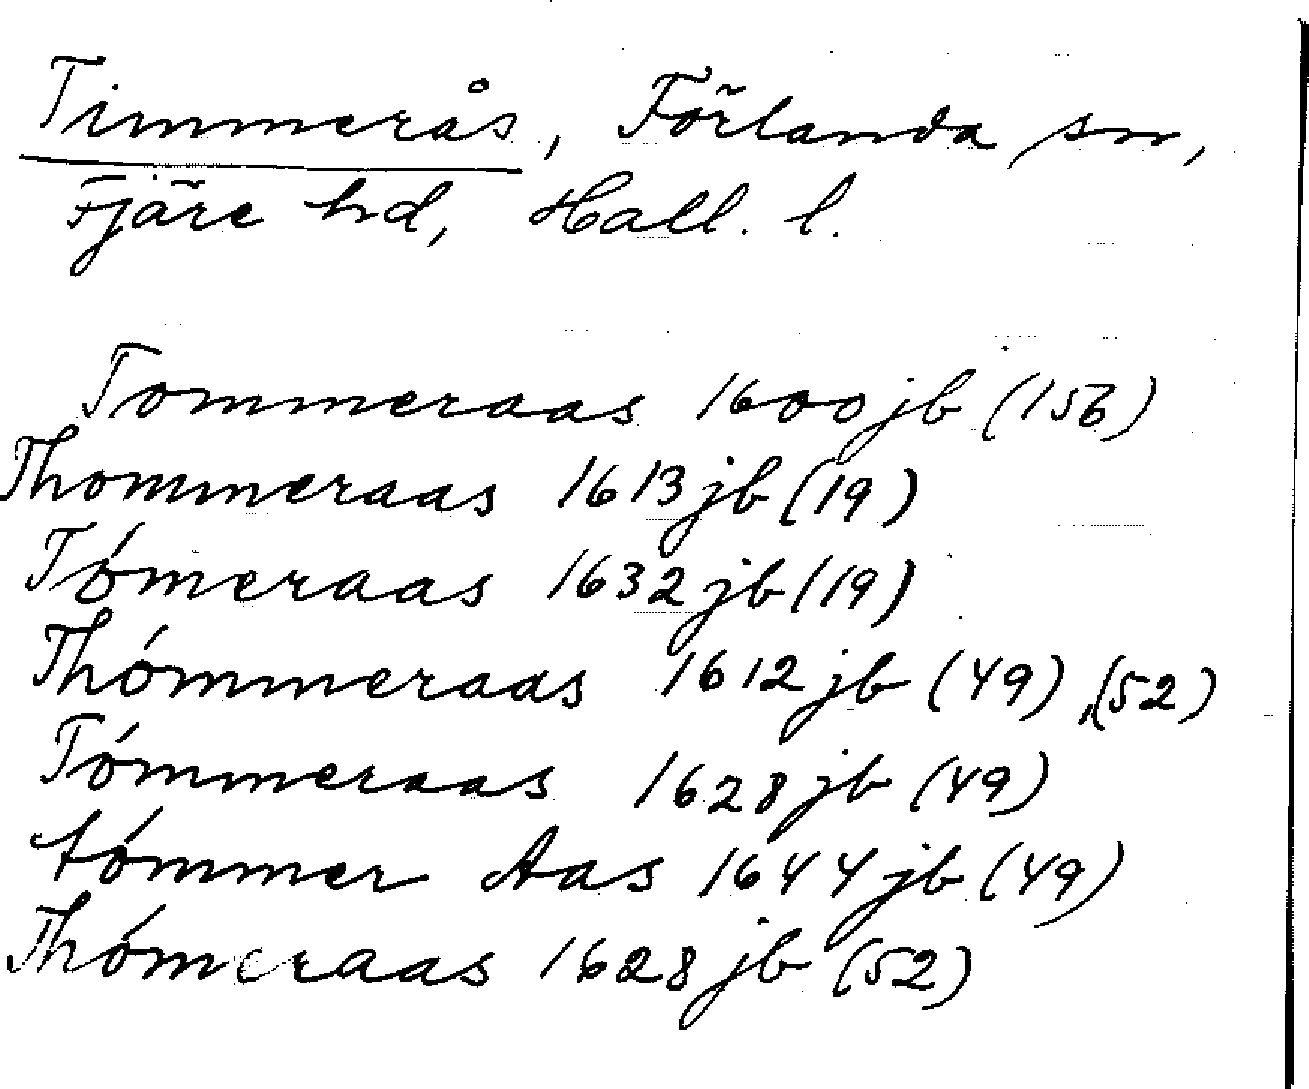 Timmerås, Förlanda sn,
Fjäre hd, Hall. l.
Tommeraas 1600 jb (156)
Thommeraas 1613 jb (19)
Tómeraas 1632 jb (19)
Thómmeraas 1612 jb (49), (52)
Tómmeraas 1628 jb (49)
tómmer Aas 1644 jb (49)
Thómeraas 1628 jb (52)